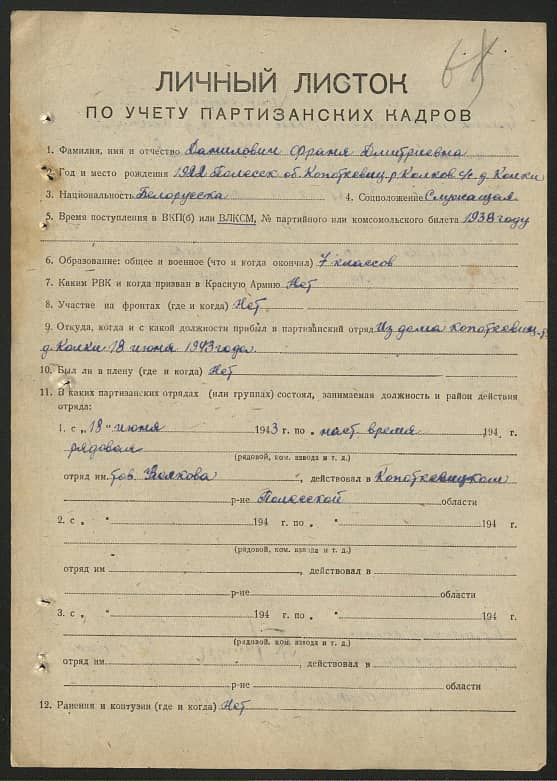 ЛИЧНЫЙ ЛИСТОК
ПО УЧЕТУ ПАРТИЗАНСКИХ КАДРОВ
1. Фамилия, имя и отчество Данилович Франя Дмитриевна
2. Год и место рождения 1922 Полесск об. Копоткевиц. р. Колков с/с д. Колки
3. Национальность Белорусска 4. Соцположение Служащая
5. Время поступления в ВКП(б) или ВЛКСМ, № партийного или комсомольского билета 1938 году
6. Образование: общее и военное (что и когда окончал) 7 классов
7. Каким РВК и когда призван в Красную Армию Нет
8. Участие на фронтах (где и когда) Нет
9. Откуда, когда и с какой должности прибыл в партизанский отряд Из дома Копоткевич.
д. Колки 18 июня 1943 года.
10. Был ли в плену (где и когда) Нет
11. В каких партизанских отрядах (или группах) состоял, занимаемая должность и район действия
отряда:
1. с „18" июня 1943 г. по наст. время 194 г.
рядовая
(рядовой, ком. взвода и т. д.)
отряд им. тов. Волкова, действовал в Копоткевицком
р-не Полесской области
2. с „ " 194 г. по „ " 194 г.
(рядовой, ком. взвода и т. д.)
отряд им , действовал в
р-не области
3. с „ " 194 г. по „ " 194 г.
(рядовой, ком. взвода и т. д.)
отряд им , действовал в
р-не области
12. Ранения и контузии (где и когда) Нет